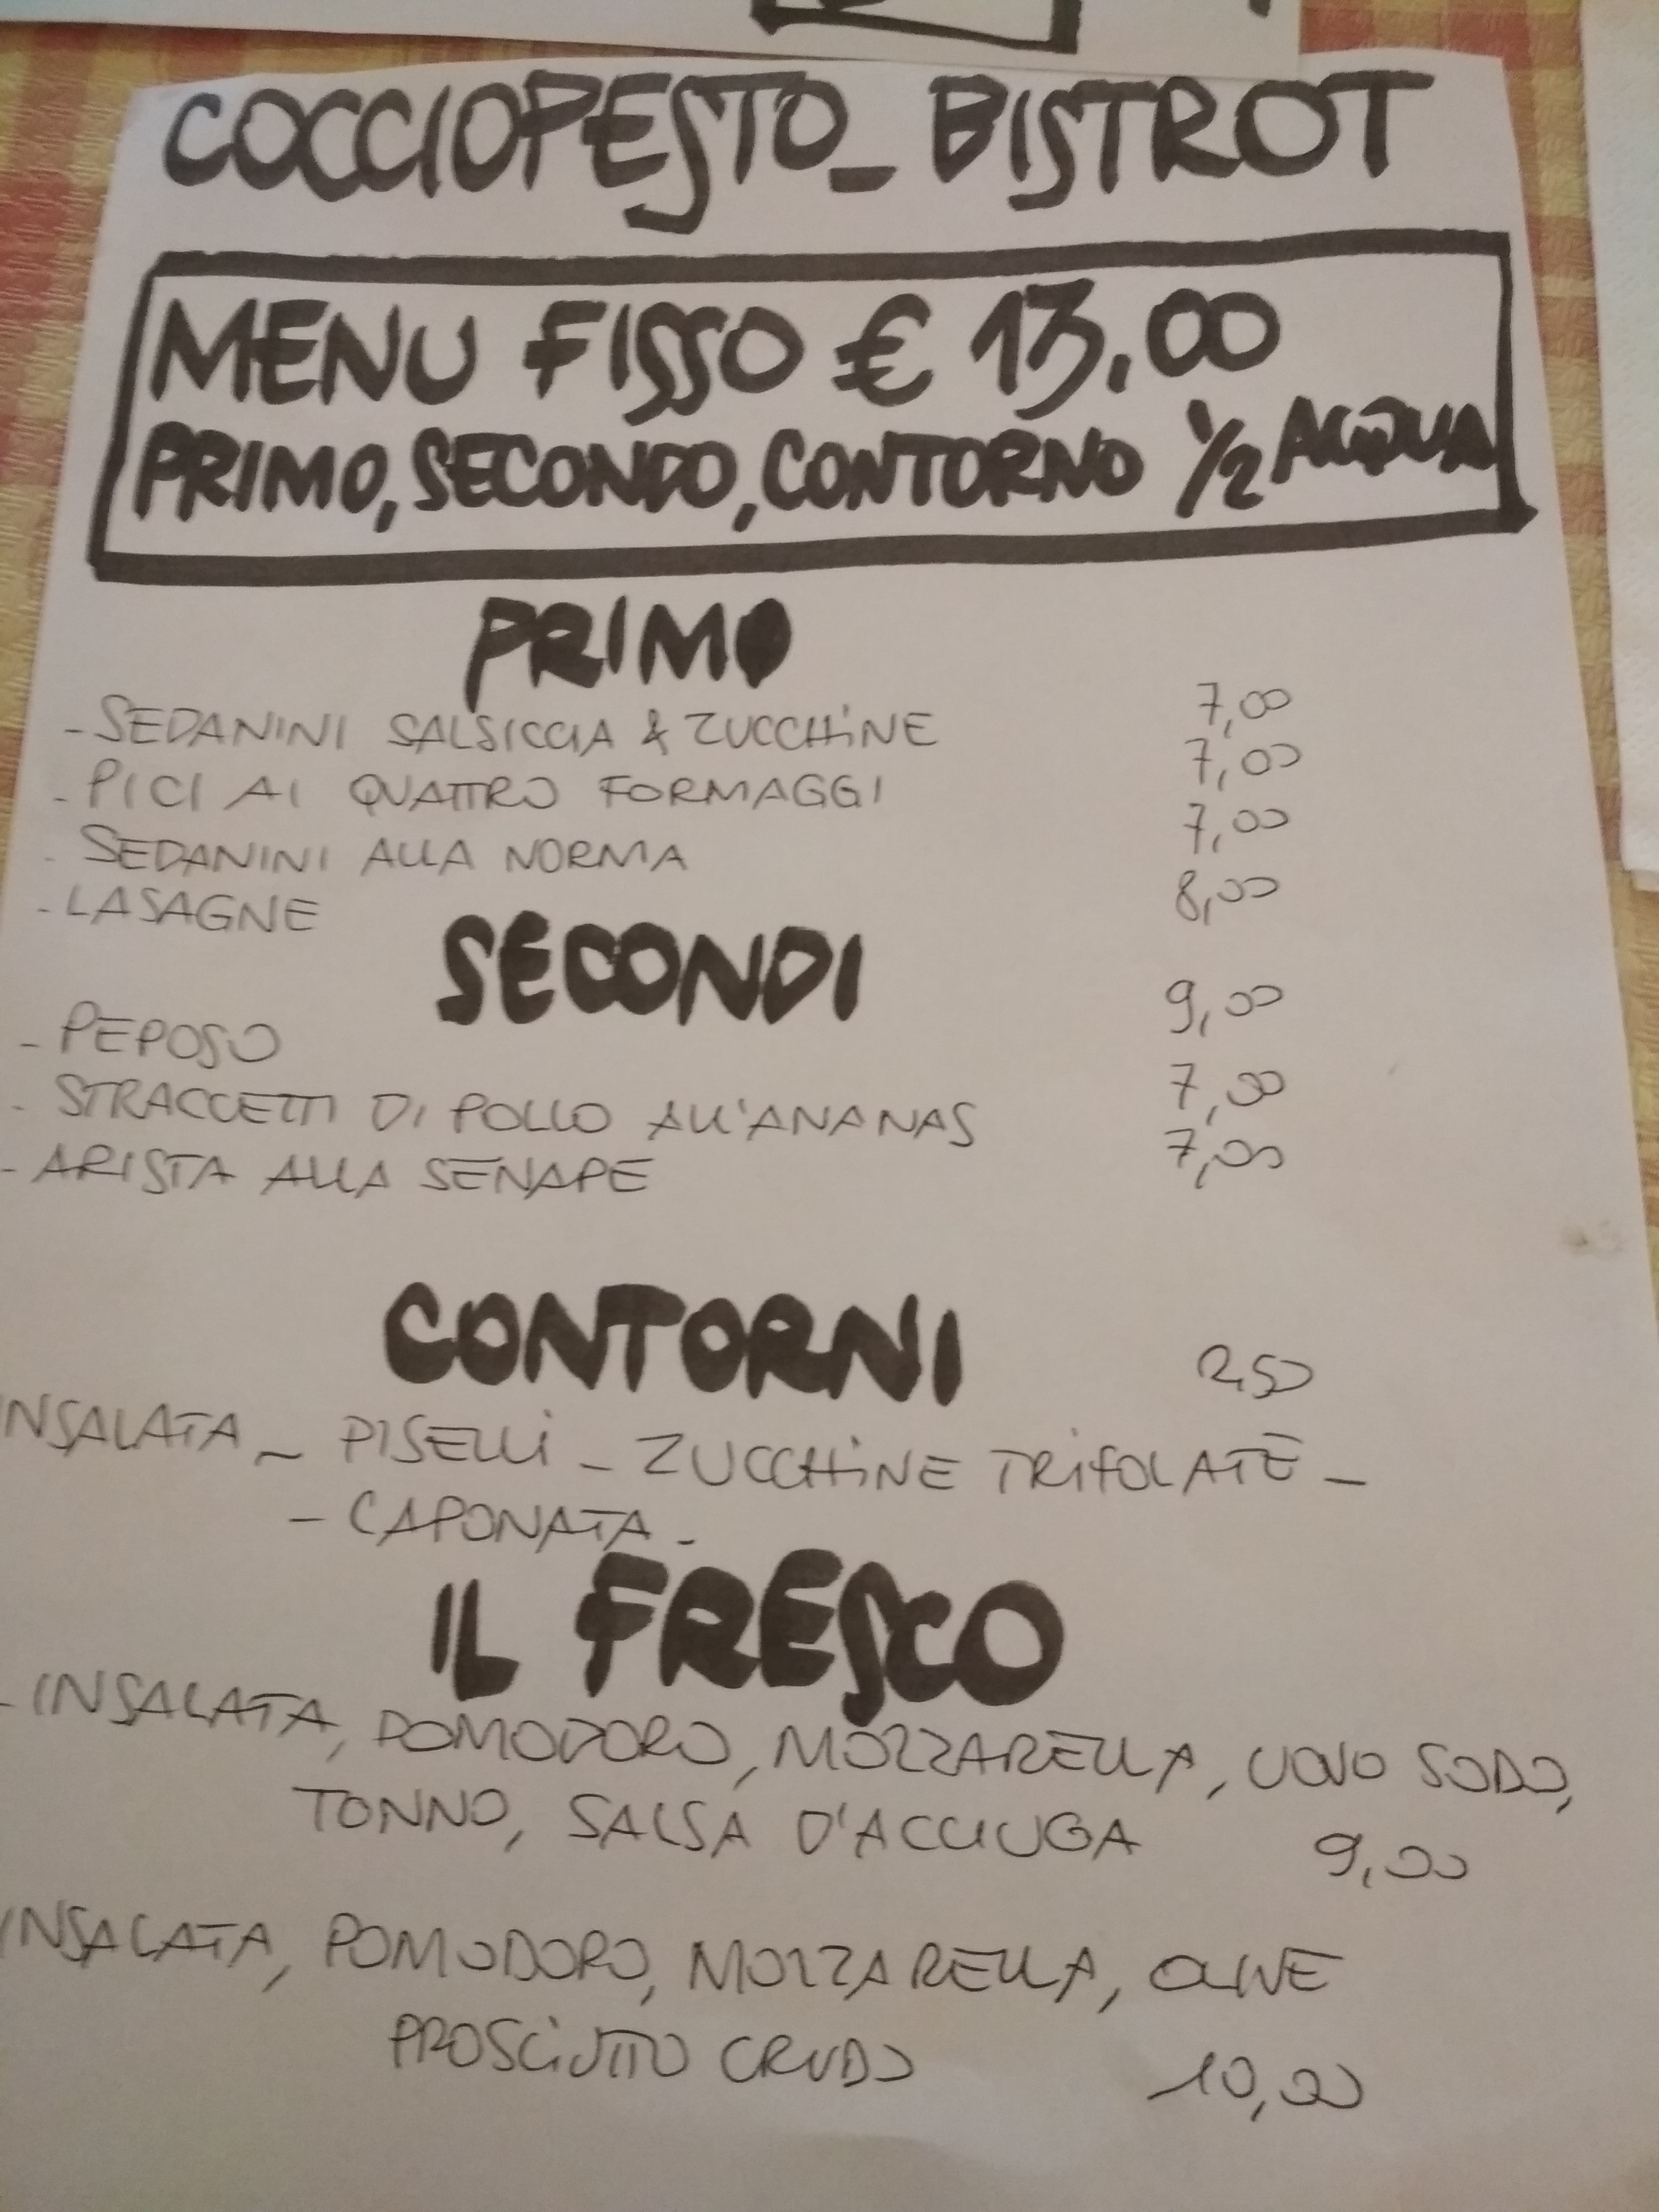 COCCIOPESTO_BISTROT
MENU FISSO € 13,00
PRIMO, SECONDO, CONTORNO 1/2 ACQUA
PRIMO
- SEDANINI SALSICCIA & ZUCCHINE 7,00
- PICI AI QUATTRO FORMAGGI 7,00
- SEDANINI ALLA NORMA 7,00
- LASAGNE 8,00
SECONDI
- PEPOSO 9,00
- STRACCETTI DI POLLO ALL'ANANAS 7,00
- ARISTA ALLA SENAPE 7,00
CONTORNI 2,50
INSALATA - PISELLI - ZUCCHINE TRIFOLATE -
- CAPONATA -
IL FRESCO
- INSALATA, POMODORO, MOZZARELLA, UOVO SODO,
TONNO, SALSA D'ACCIUGA 9,00
INSALATA, POMODORO, MOZZARELLA, OLIVE
PROSCIUTTO CRUDO 10,00